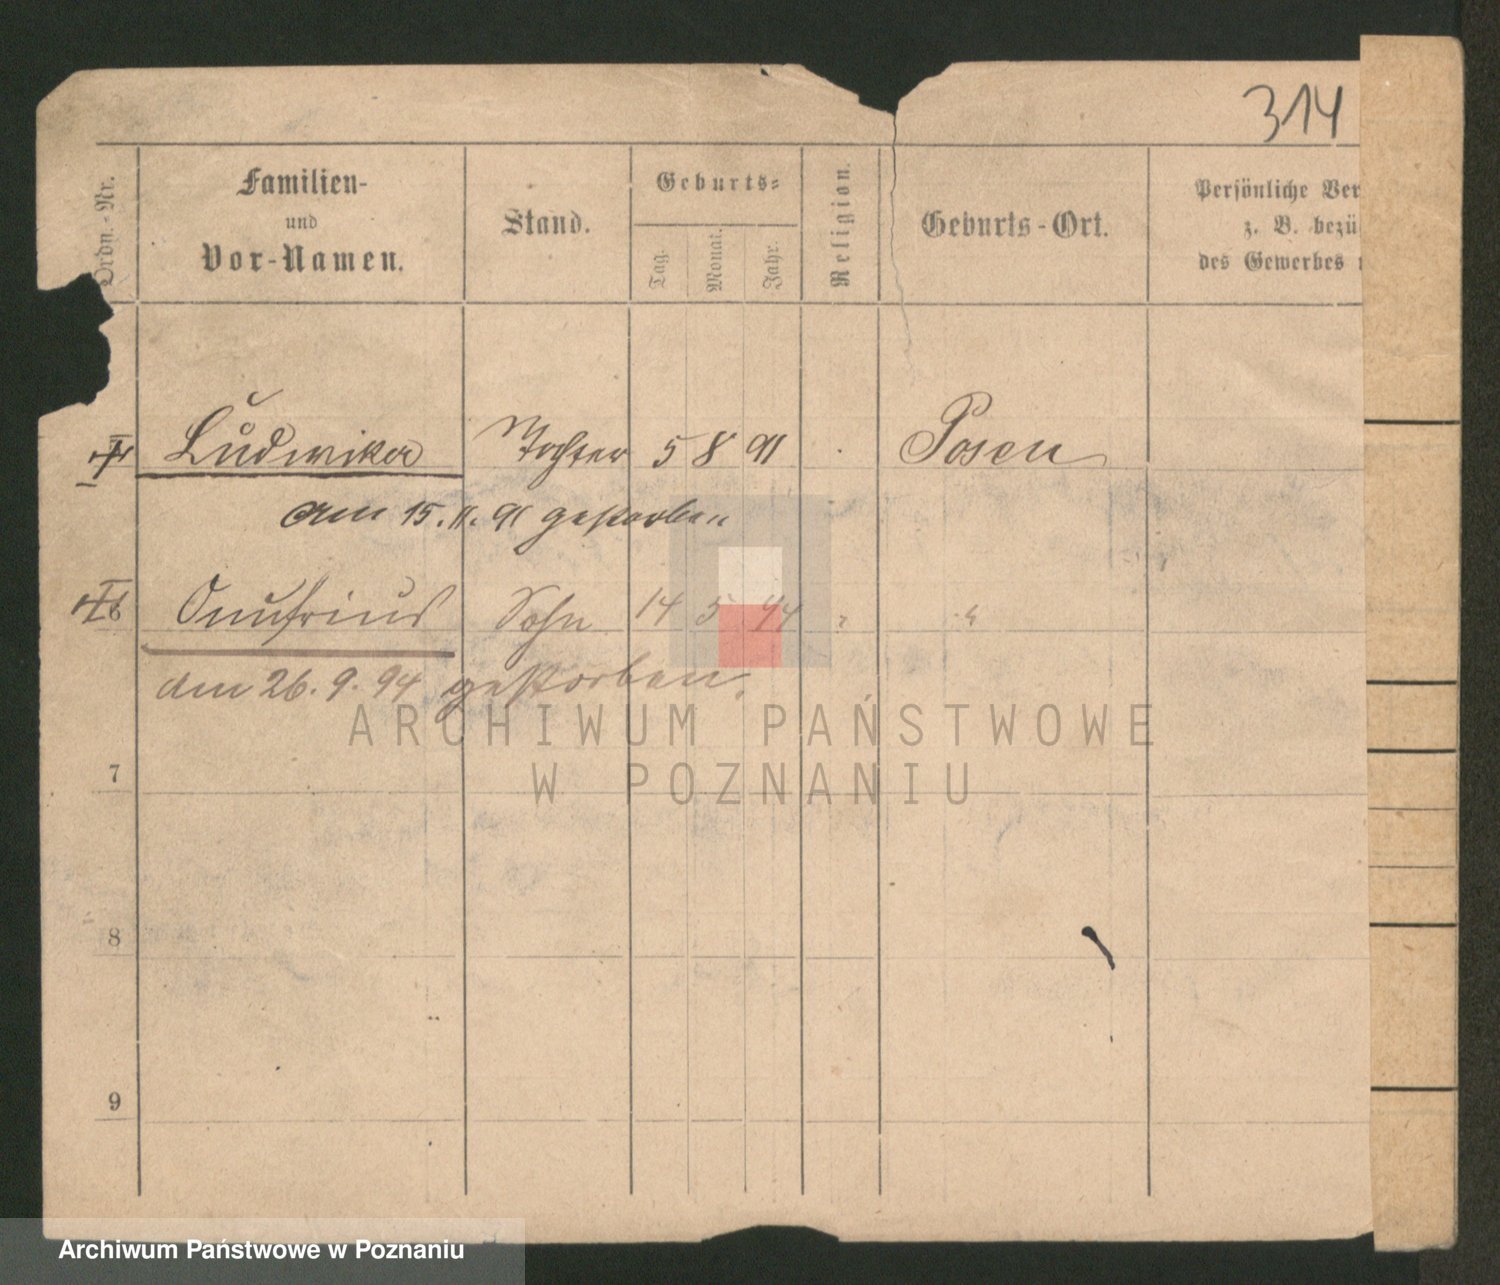 314
Ordn.-Nr.
Familien-
und
Vor-Namen.
Stand.
Geburts-
Tag.
Monat.
Jahr.
Religion.
Geburts-Ort.
Persönliche Ver
z. B. bezü
des Gewerbes
Ludwika Tochter 5 8 91 Posen
am 15.11.91 gestorben
6 Onufrius Sohn 14 5 94 " "
am 26.9.94 gestorben.
7
8
9
ARCHIWUM PAŃSTWOWE
W POZNANIU
Archiwum Państwowe w Poznaniu